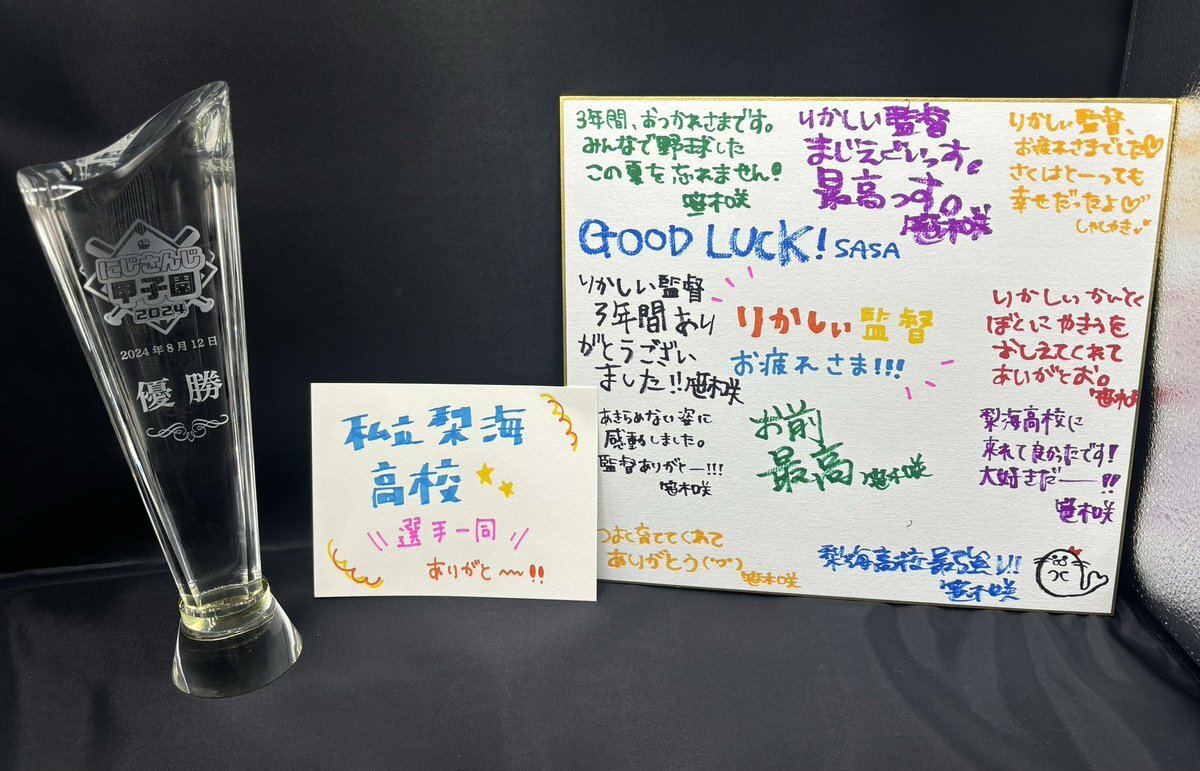 にじさんじ
甲子園
2024
2024年8月12日
優勝
私立梨海
高校
選手一同
ありがと〜〜!!
3年間、おつかれさまです。
みんなで野球した
この夏を忘れません!
笹木咲
りかしぃ監督
まじえぐいっす。
最高っす。
笹木咲
りかしぃ監督、
お疲れさまでした♡
さくはとーっても
幸せだったよ♡
しゃしゃき
GOOD LUCK! SASA
りかしぃ監督
3年間あり
がとうござい
ました!!笹木咲
りかしぃ監督
お疲れさま!!!
りかしぃかんとく
ぼといにやきうを
おしえてくれて
あいがとお。
笹木咲
あきらめない姿に
感動しました。
監督ありがとー!!!
笹木咲
お前
最高 笹木咲
梨海高校に
来れて良かったです!
大好きだ――!!
笹木咲
つよく育ててくれて
ありがとう
笹木咲
梨海高校最強ﾘ!
笹木咲